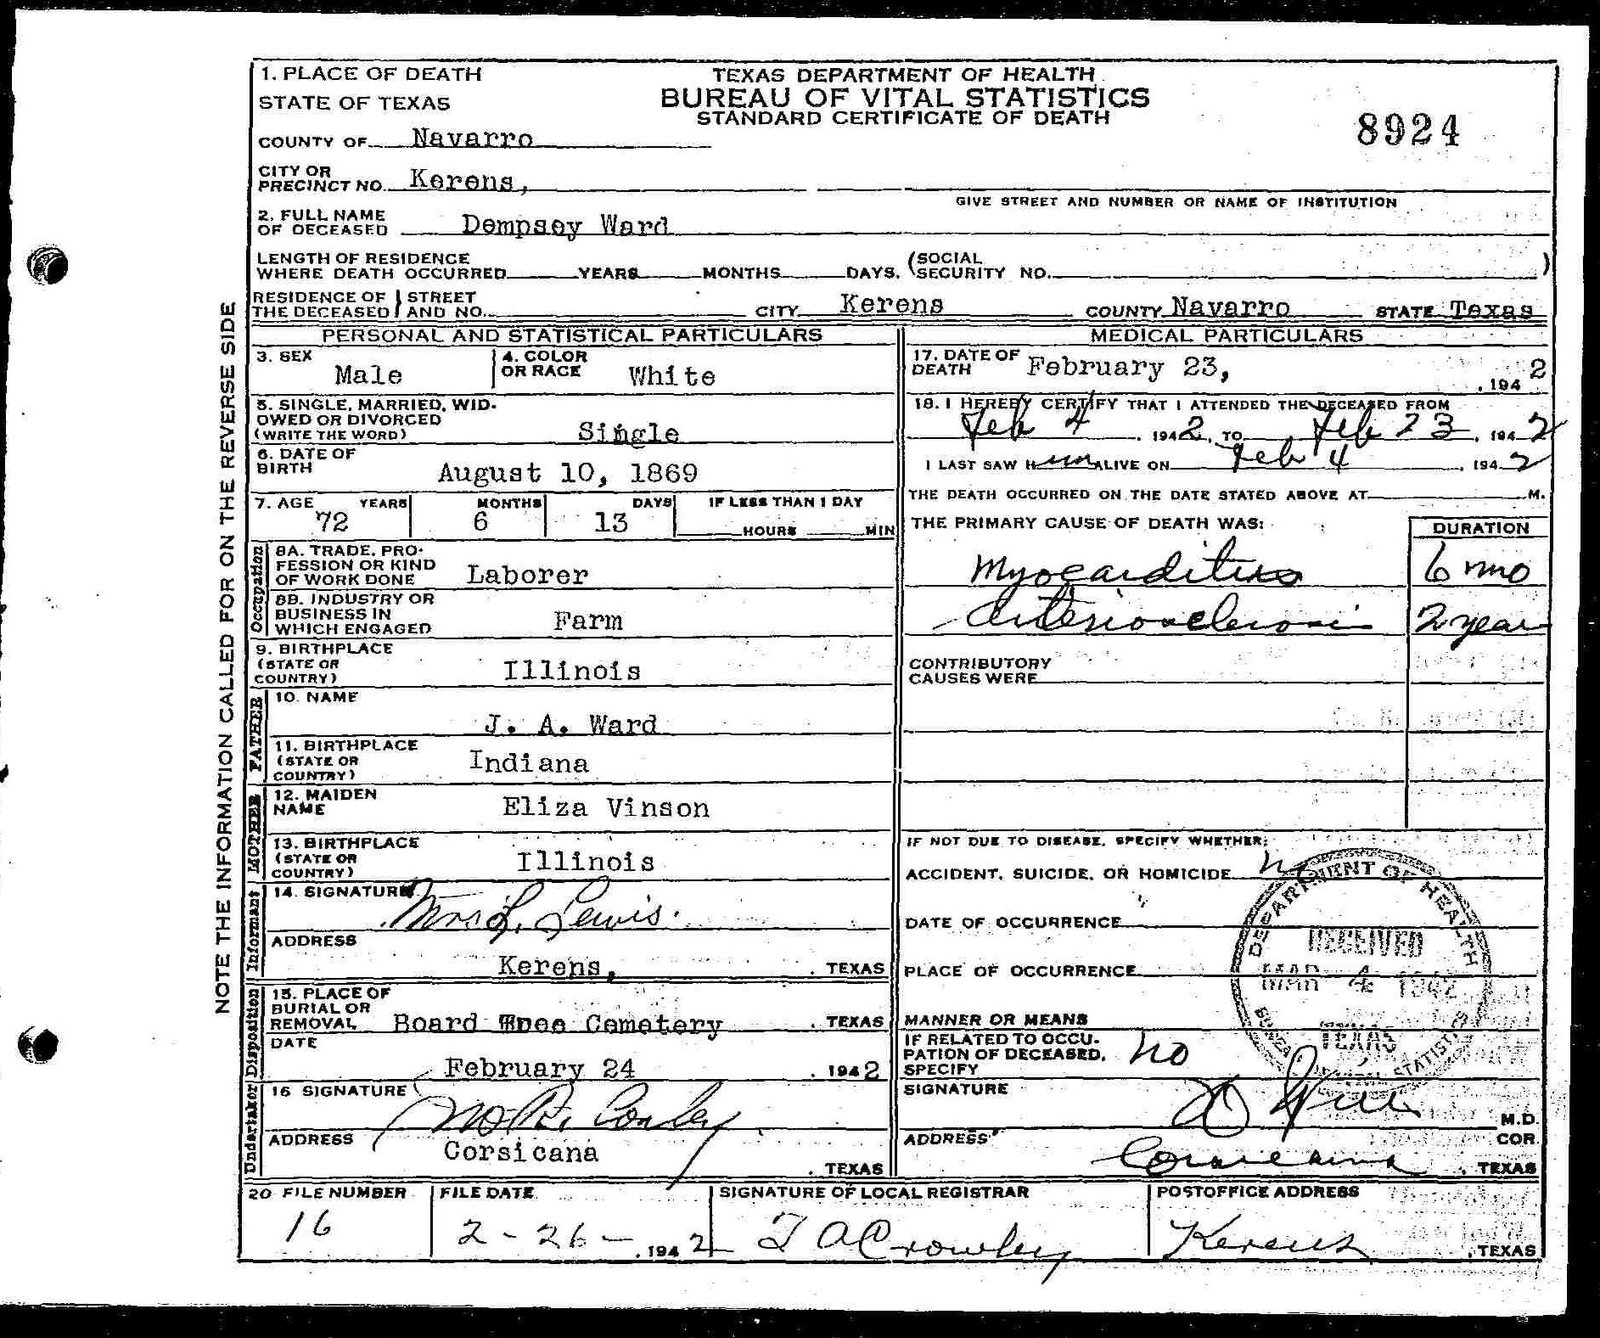 1. PLACE OF DEATH
STATE OF TEXAS
TEXAS DEPARTMENT OF HEALTH
BUREAU OF VITAL STATISTICS
STANDARD CERTIFICATE OF DEATH
8924
COUNTY OF Navarro
CITY OR
PRECINCT NO. Kerens,
GIVE STREET AND NUMBER OR NAME OF INSTITUTION
2. FULL NAME
OF DECEASED Dempsey Ward
LENGTH OF RESIDENCE
WHERE DEATH OCCURRED YEARS MONTHS DAYS. (SOCIAL
SECURITY NO. )
RESIDENCE OF
THE DECEASED
STREET
AND NO. CITY Kerens COUNTY Navarro STATE Texas
NOTE THE INFORMATION CALLED FOR ON THE REVERSE SIDE
PERSONAL AND STATISTICAL PARTICULARS
3. SEX
Male
4. COLOR
OR RACE White
5. SINGLE, MARRIED, WID-
OWED OR DIVORCED
(WRITE THE WORD) Single
6. DATE OF
BIRTH August 10, 1869
7. AGE YEARS MONTHS DAYS IF LESS THAN 1 DAY
72 6 13 HOURS MIN
Occupation
8A. TRADE, PRO-
FESSION OR KIND
OF WORK DONE Laborer
8B. INDUSTRY OR
BUSINESS IN
WHICH ENGAGED Farm
9. BIRTHPLACE
(STATE OR
COUNTRY) Illinois
FATHER
10. NAME
J. A. Ward
11. BIRTHPLACE
(STATE OR
COUNTRY) Indiana
MOTHER
12. MAIDEN
NAME Eliza Vinson
13. BIRTHPLACE
(STATE OR
COUNTRY) Illinois
Informant
14. SIGNATURE Mrs L. Lewis.
ADDRESS
Kerens, . TEXAS
Disposition
15. PLACE OF
BURIAL OR
REMOVAL Board Tree Cemetery . TEXAS
DATE
February 24 . 1942
Undertaker
16 SIGNATURE
Corley
ADDRESS Corsicana
. TEXAS
MEDICAL PARTICULARS
17. DATE OF
DEATH February 23, , 1942
18. I HEREBY CERTIFY THAT I ATTENDED THE DECEASED FROM
Feb 4 , 1942, TO Feb 23, 1942
I LAST SAW Him ALIVE ON Feb 4 , 1942
THE DEATH OCCURRED ON THE DATE STATED ABOVE AT M.
THE PRIMARY CAUSE OF DEATH WAS: DURATION
Myocarditis 6 mo
Arteriosclerosis 2 year
CONTRIBUTORY
CAUSES WERE
IF NOT DUE TO DISEASE, SPECIFY WHETHER:
ACCIDENT, SUICIDE, OR HOMICIDE no
DATE OF OCCURRENCE
PLACE OF OCCURRENCE
MANNER OR MEANS
IF RELATED TO OCCU-
PATION OF DECEASED,
SPECIFY no
DEPARTMENT OF HEALTH
RECEIVED
MAR 4 1942
TEXAS
BUREAU STATISTICS
SIGNATURE
M.D.
ADDRESS COR.
Corsicana . TEXAS
20 FILE NUMBER
16
FILE DATE
2-26- , 1942
SIGNATURE OF LOCAL REGISTRAR
T A Crowley
POSTOFFICE ADDRESS
Kerens , TEXAS